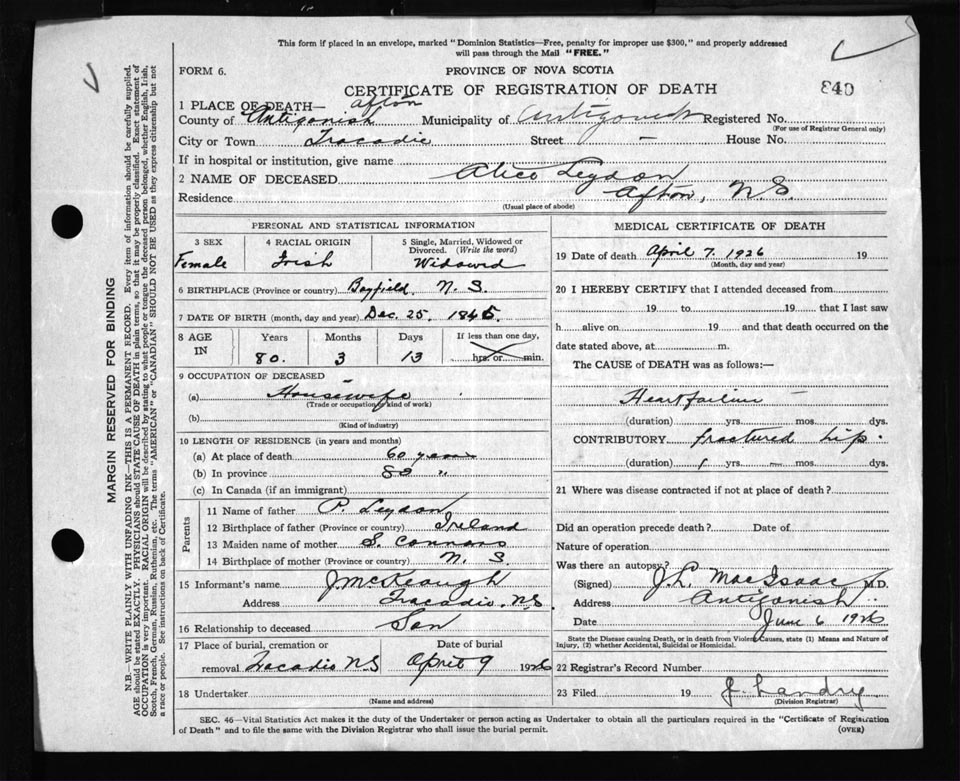 This form if placed in an envelope, marked "Dominion Statistics—Free, penalty for improper use $300," and properly addressed
will pass through the Mail "FREE."
FORM 6.
PROVINCE OF NOVA SCOTIA
CERTIFICATE OF REGISTRATION OF DEATH
840
1 PLACE OF DEATH— Afton
County of Antigonish Municipality of Antigonish Registered No.
(For use of Registrar General only)
City or Town Tracadie Street — House No.
If in hospital or institution, give name
2 NAME OF DECEASED Alice Leydon
Residence Afton, N.S.
(Usual place of abode)
PERSONAL AND STATISTICAL INFORMATION
3 SEX
Female
4 RACIAL ORIGIN
Irish
5 Single, Married, Widowed or
Divorced. (Write the word)
Widowed
6 BIRTHPLACE (Province or country) Bayfield N. S.
7 DATE OF BIRTH (month, day and year) Dec. 25. 1845
8 AGE
IN
Years
80.
Months
3
Days
13
If less than one day,
hrs. or min.
9 OCCUPATION OF DECEASED
(a) Housewife
(Trade or occupation or kind of work)
(b)
(Kind of industry)
10 LENGTH OF RESIDENCE (in years and months)
(a) At place of death 60 years
(b) In province 80 "
(c) In Canada (if an immigrant)
Parents
11 Name of father P. Leydon
12 Birthplace of father (Province or country) Ireland
13 Maiden name of mother S. Connors
14 Birthplace of mother (Province or country) N. S.
15 Informant's name J. McKeough
Address Tracadie, N.S.
16 Relationship to deceased Son
17 Place of burial, cremation or
removal Tracadie N S
Date of burial
April 9 1926
18 Undertaker
(Name and address)
MEDICAL CERTIFICATE OF DEATH
19 Date of death April 7. 1926 19
(Month, day and year)
20 I HEREBY CERTIFY that I attended deceased from
19 to 19 that I last saw
h alive on 19 and that death occurred on the
date stated above, at m.
The CAUSE of DEATH was as follows:—
Heart failure —
(duration) yrs. mos. dys.
CONTRIBUTORY fractured hip.
(duration) 1 yrs. — mos. dys.
21 Where was disease contracted if not at place of death?
Did an operation precede death? Date of
Nature of operation
Was there an autopsy?
(Signed) J. L. MacIsaac M.D.
Address Antigonish
Date June 6 1926
State the Disease causing Death, or in death from Violent Causes, state (1) Means and Nature of
Injury, (2) whether Accidental, Suicidal or Homicidal.
22 Registrar's Record Number
23 Filed 19 J. Landry
(Division Registrar)
SEC. 46—Vital Statistics Act makes it the duty of the Undertaker or person acting as Undertaker to obtain all the particulars required in the "Certificate of Registration
of Death" and to file the same with the Division Registrar who shall issue the burial permit.
(OVER)
MARGIN RESERVED FOR BINDING
N.B.—WRITE PLAINLY WITH UNFADING INK—THIS IS A PERMANENT RECORD. Every item of information should be carefully supplied.
AGE should be stated EXACTLY. PHYSICIANS should STATE CAUSE OF DEATH in plain terms, so that it may be properly classified. Exact statement of
OCCUPATION is very important. RACIAL ORIGIN will be described by stating to what people or tongue the deceased person belonged, whether English, Irish,
Scotch, French, German, Russian, Ruthenian, etc. The terms "AMERICAN" or "CANADIAN" SHOULD NOT BE USED as they express citizenship but not
a race or people. See instructions on back of Certificate.